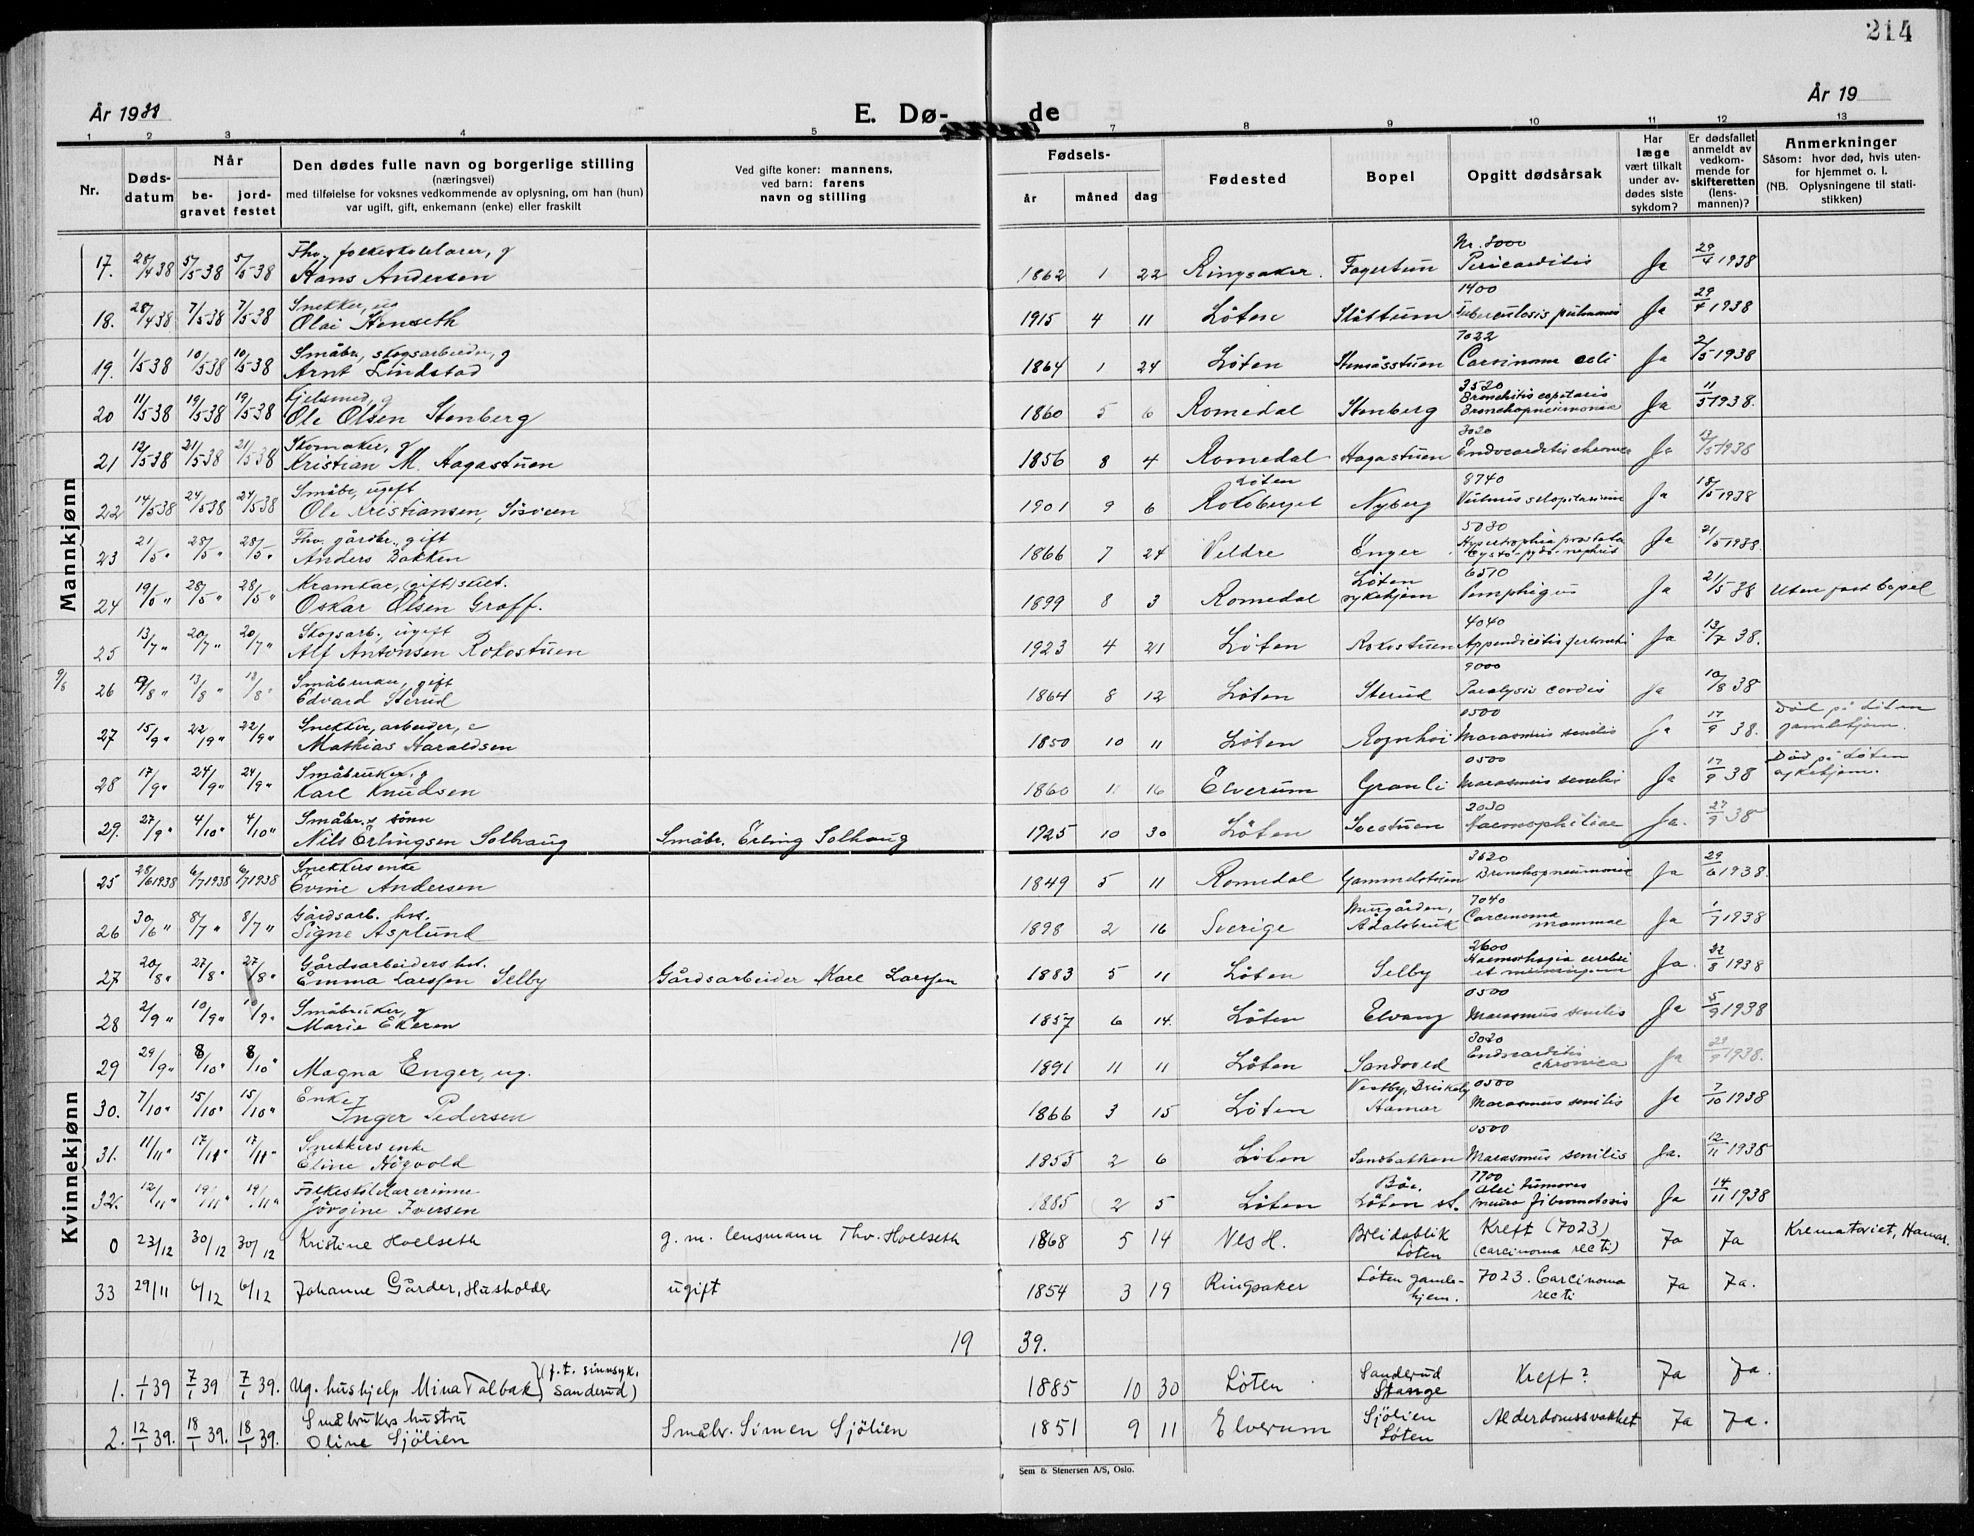 214
År 1938
E. Dø-
de
År 19
1 2 3 4 5 7 8 9 10 11 12 13
Nr.
Døds-
datum
Når
be-
gravet
jord-
festet
Den dødes fulle navn og borgerlige stilling
(næringsvei)
med tilføielse for voksnes vedkommende av oplysning, om han (hun)
var ugift, gift, enkemann (enke) eller fraskilt
Ved gifte koner: mannens,
ved barn: farens
navn og stilling
Fødsels-
år måned dag
Fødested
Bopel
Opgitt dødsårsak
Har
læge
vært tilkalt
under av-
dødes siste
sykdom?
Er dødsfallet
anmeldt av
vedkom-
mende for
skifteretten
(lens-
mannen)?
Anmerkninger
Såsom: hvor død, hvis uten-
for hjemmet o. l.
(NB. Oplysningene til stati-
stikken)
Mannkjønn
Fhv. folkeskolelærer, g Nr. 3000
17. 28/4 38 5/5 38 5/5 38 Hans Andersen 1862 1 22 Ringsaker. Fagertun Pericarditis Ja 29/4 1938
Snekker, ug 1400
18. 28/4 38 7/5 38 7/5 38 Olai Stenseth 1915 4 11 Løten Slåttum Tuberculosis pulmonis Ja 29/4 1938
Småbr., skogsarbeider, g 7022
19. 1/5 38 10/5 38 10/5 38 Arnt Lindstad 1864 1 24 Løten Stenåsstuen Carcinoma coli Ja 2/5 1938
Kjelsmed, g 3520 Bronchitis capilaris
20 11/5 38 19/5 38 19/5 38 Ole Olsen Stenberg 1860 5 6 Romedal Stenberg Bronchopneumoniae Ja 11/5 1938.
Skomaker, g 3020
21 12/5 38 21/5 38 21/5 38 Kristian M. Hagastuen 1856 8 4 Romedal Hagastuen Endocarditis chronica Ja 13/5 1938
Småbr., ugift Løten 8740
22 14/5 38 24/5 38 24/5 38 Ole Kristiansen, 1901 9 6 Rokoberget Nyberg Vulnus sclopitarium Ja 18/5 1938
Fhv. gårdbr., gift 5030 Hypertrophia prostata
23 21/5 " 28/5 " 28/5 " Anders Bakken 1866 7 24 Veldre Enger Cysto-pyo-nephrit Ja 21/5 1938.
Kramkar, (gift) skilt. Løten 6510
24 19/5 " 28/5 " 28/5 " Oskar Olsen Graff. 1899 8 3 Romedal sykehjem Pemphigus Ja 21/5 38 Uten fast bopel
Skogsarb., ugift 4040
25 13/7 " 20/7 " 20/7 " Alf Antonsen Rokostuen 1923 4 21 Løten Rokostuen Appendicitis perforata Ja 13/7 38.
Småbruker, gift 9000
9/8 26 9/8 " 13/8 " 13/8 " Edvard Sterud 1864 8 12 Løten Sterud Paralysis cordis Ja 10/8 38
Snekker, arbeider, e 0500 Død på Løten
27 15/9 " 22/9 " 22/9 " Mathias Haraldsen 1850 10 11 Løten Rognhøi Marasmus senilis Ja 17/9 38. gamlehjem
Småbruker, g 0500 Død på Løten
28 17/9 " 24/9 " 24/9 " Karl Knudsen 1860 11 16 Elverum Granli Marasmus senilis Ja 17/9 38 sykehjem.
Småbr.s sønn 2030
29. 27/9 " 4/10 " 4/10 " Nils Erlingsen Solhaug Småbr. Erling Solhaug 1925 10 30 Løten Ivestuen Haemophiliae Ja. 27/9 38
Kvinnekjønn
Snekkers enke 3620
25 28/6 1938 6/7 1938 6/7 1938 Evine Andersen 1849 5 11 Romedal Gammelstuen Bronchopneumonie Ja 29/6 1938.
Gårdsarb. hst. Murgården, 7040 Carcinoma
26 30/6 " 8/7 " 8/7 " Signe Asplund 1898 2 16 Sverige Ådalsbruk mammae Ja 1/7 1938
Gårdsarbeiders hst. 2600 Haemorhagia cerebri
27 20/8 " 27/8 " 27/8 " Emma Larssen Selby Gårdsarbeider Karl Larssen 1883 5 11 Løten Selby et meningum Ja. 22/8 1938
Småbruker, g 0500
28 2/9 " 10/9 " 10/9 " Marie Ekeren 1857 6 14. Løten Elvang Marasmus senilis Ja 5/9 1938
3020 Endocarditis
29 29/9 " 8/10 " 8/10 " Magna Enger, ug. 1891 11 11 Løten Sandsved chronica Ja 29/9 1938.
Enke, Vestby, Briskeby 0500
30. 7/10 " 15/10 " 15/10 " Inger Pedersen 1866 3 15 Løten Hamar Marasmus senilis Ja 7/10 1938
Snekkers enke 0500
31. 11/11 " 17/11 " 17/11 " Eline Høgvold 1855 2 6 Løten Sandbakken Marasmus senilis Ja. 12/11 1938
Folkeskolelærerinne Bøe, 1700 Alii tumores
32. 12/11 " 19/11 " 19/11 " Jørgine Iversen 1885 2 5 Løten Løten st. neuro fibromatosis Ja 14/11 1938
0 23/12 30/12 30/12 Kristine Hoelseth g. m. lensmann Thv. Hoelseth 1868 5 14 Nes H. Breidablik Løten Kreft (7023) (carcinoma recti) Ja Ja Krematoriet, Hamar.
33 29/11 6/12 6/12 Johanne Gårder, Husholder ugift 1854 3 19 Ringsaker Løten gamle-hjem. 7023. Carcinoma recti Ja Ja.
19 39.
1. 1/1 39 7/1 39 7/1 39. Ug. hushjelp Mina Talbak (f.t. sinnsyk. Sanderud) 1885 10 30 Løten Sanderud Stange Kreft? Ja Ja.
Småbrukers hustru Sjölien
2. 12/1 39. 18/1 39. 18/1 39. Oline Sjölien Småbr. Simen Sjölien 1851 9 11 Elverum Løten Alderdomssvakhet Ja Ja.
Sem & Stenersen A/S, Oslo.